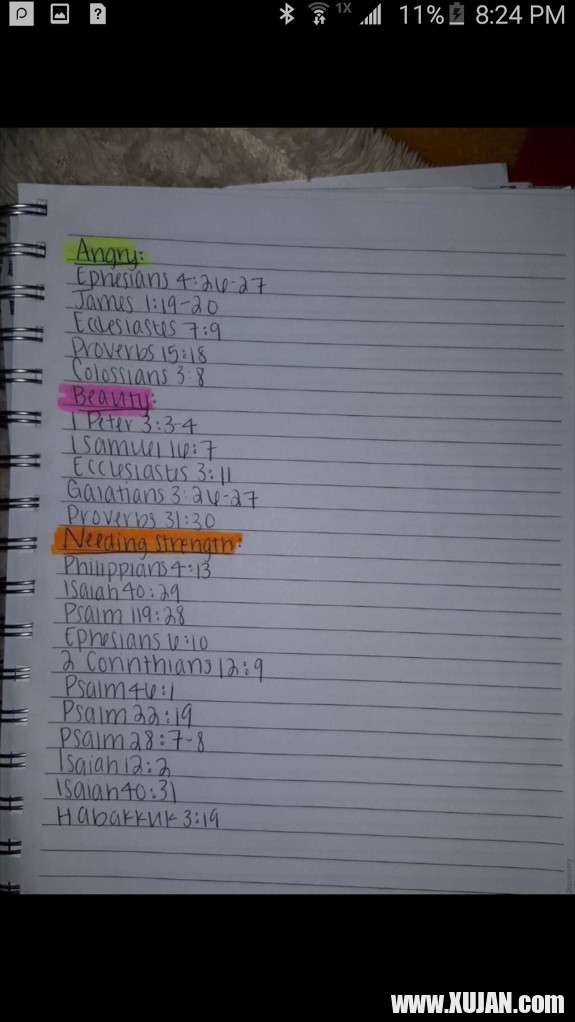 1X 11% 8:24 PM
Angry:
Ephesians 4:26-27
James 1:19-20
Ecclesiastes 7:9
Proverbs 15:18
Colossians 3:8
Beauty:
1 Peter 3:3-4
1 Samuel 16:7
Ecclesiastes 3:11
Galatians 3:26-27
Proverbs 31:30
Needing strength:
Philippians 4:13
Isaiah 40:29
Psalm 119:28
Ephesians 6:10
2 Corinthians 12:9
Psalm 46:1
Psalm 22:19
Psalm 28:7-8
Isaiah 12:2
Isaiah 40:31
Habakkuk 3:19
www.XUJAN.com